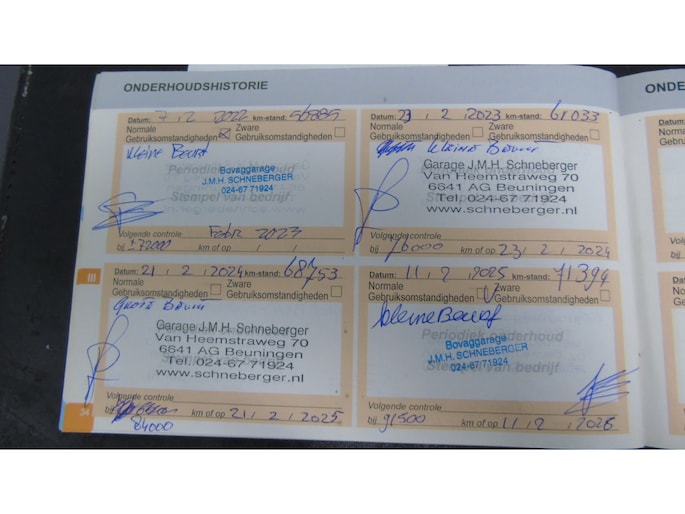 ONDERHOUDSHISTORIE
OND
Datum: 7 / 2 / 2022 km-stand: 56885
Normale Zware
Gebruiksomstandigheden Gebruiksomstandigheden
Kleine Beurt
Periodiek onderhoud
Bovaggarage
J.M.H. SCHNEBERGER
024-67 71924
Stempel van bedrijf
Volgende controle Febr 2023
bij ± 72000 km of op / /
Datum: 23 / 2 / 2023 km-stand: 61033
Normale Zware
Gebruiksomstandigheden Gebruiksomstandigheden
Kleine Beurt
Garage J.M.H. Schneberger
Van Heemstraweg 70
6641 AG Beuningen
Tel. 024-67 71924
www.schneberger.nl
Volgende controle
bij 76000 km of op 23 / 2 / 2024
III
Datum: 21 / 2 / 2024 km-stand: 68753
Normale Zware
Gebruiksomstandigheden Gebruiksomstandigheden
Grote Beurt
Garage J.M.H. Schneberger
Van Heemstraweg 70
6641 AG Beuningen
Tel. 024-67 71924
www.schneberger.nl
Volgende controle
bij km of op 21 / 2 / 2025
84000
Datum: 11 / 2 / 2025 km-stand: 71394
Normale Zware
Gebruiksomstandigheden Gebruiksomstandigheden
kleine Beurt
Periodiek onderhoud
Bovaggarage
J.M.H. SCHNEBERGER
024-67 71924
Stempel van bedrijf
Volgende controle
bij 91500 km of op 11 / 2 / 2026
34